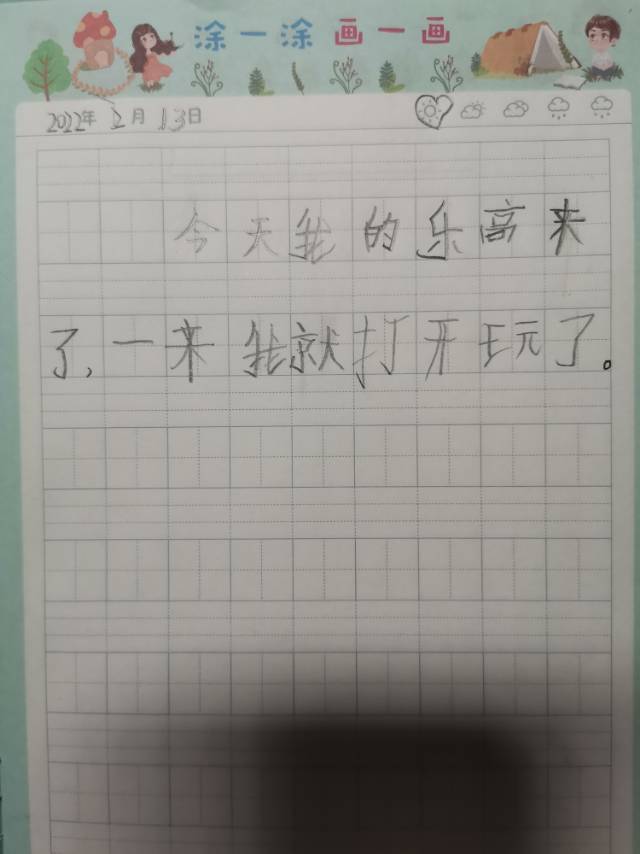 涂一涂 画一画
2022年 2月 13日
今天我的乐高来
了，一来我就打开玩了。